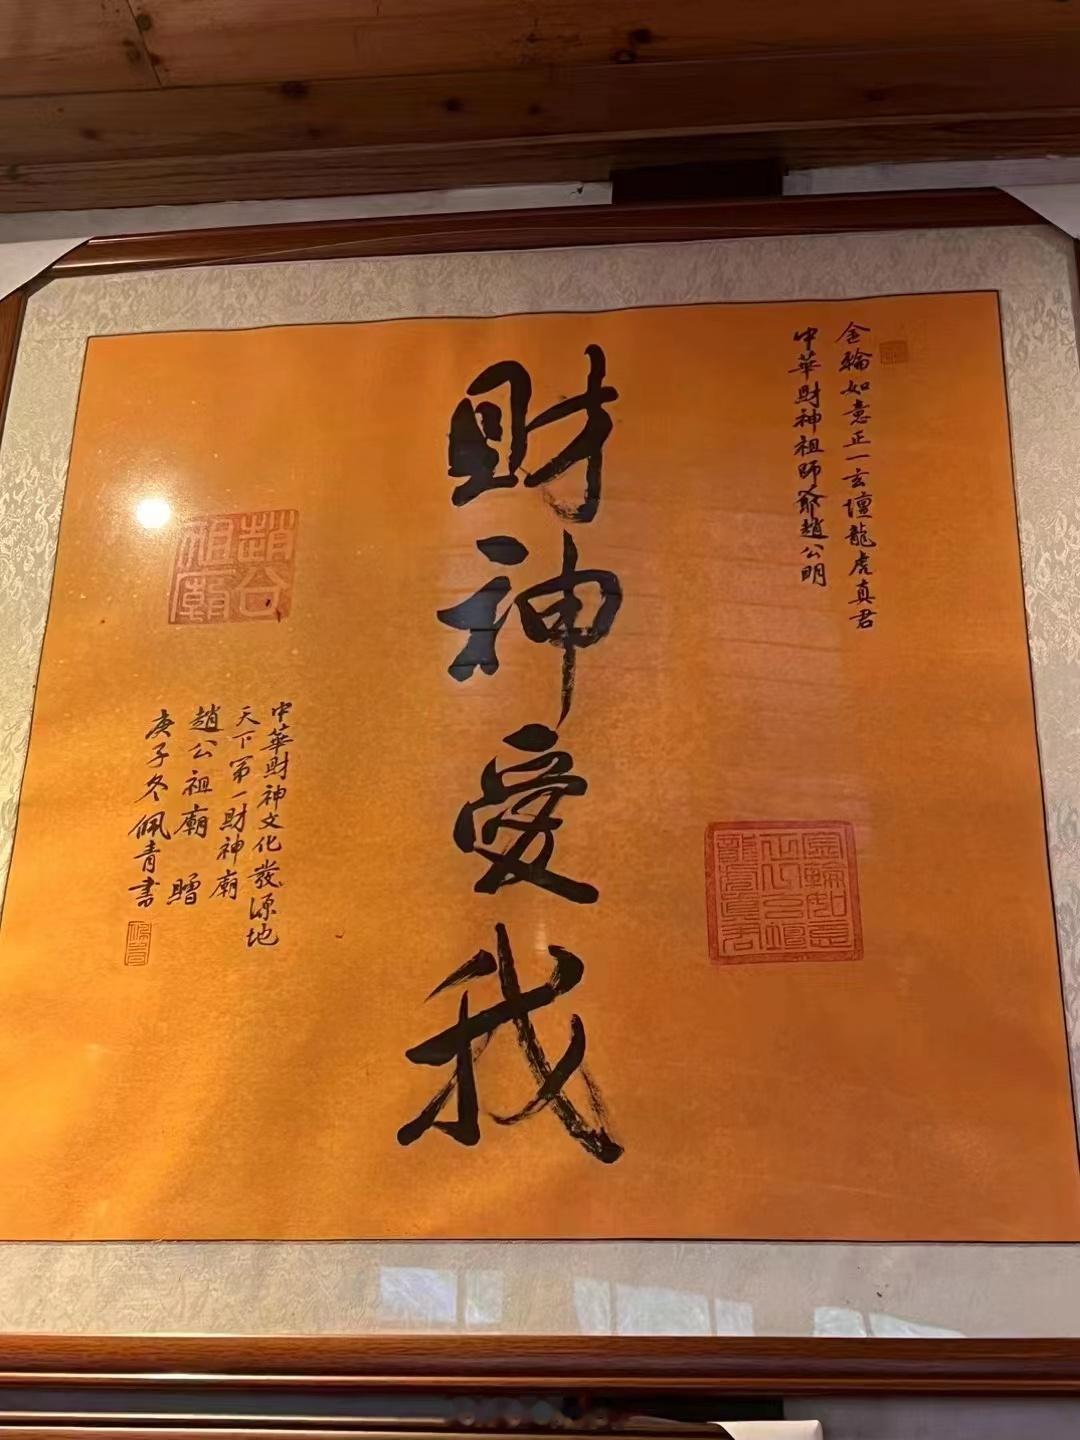 金輪如意正一玄壇龍虎真君
中華財神祖師爺趙公明
財神愛我
趙公祖廟
中華財神文化發源地
天下第一財神廟
趙公祖廟 贈
庚子冬佩青書